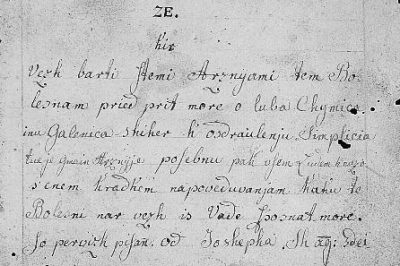 ZE.
Kir
Vezh barti stemi Arznyami tem Bo-
lesnam pried prit more o luba Chymics
inu Galenica skiker k osdraulenju Simplicia
tu je gmain Arznyje posebnu pak vsem Ludem knuzo
s'enem kradkem napoveduvanjam kaku te
Bolesni nar vezh is Vade sposnat more.
So pervizh pisan od Joshepha